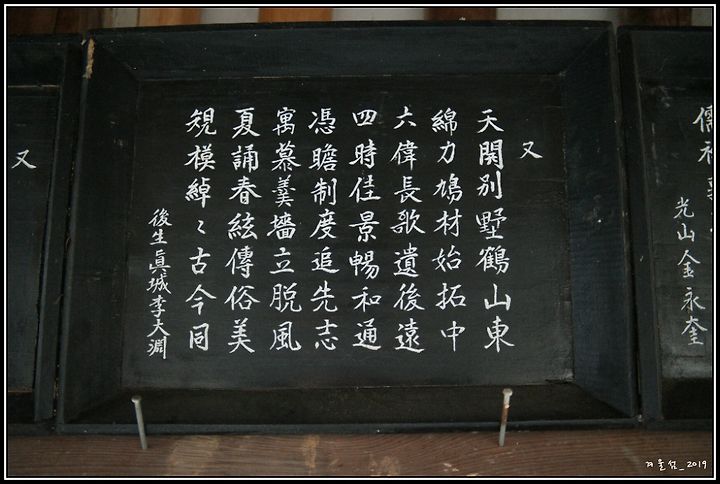 儒
光山金永奎
又
天関別墅鶴山東
綿力鳩材始拓中
六偉長歌遺後遠
四時佳景暢和通
憑瞻制度追先志
寓慕羹墻立脱風
夏誦春絃傳俗美
䂓模綽〻古今同
後生眞城李大淵
又
겨울섬_2019